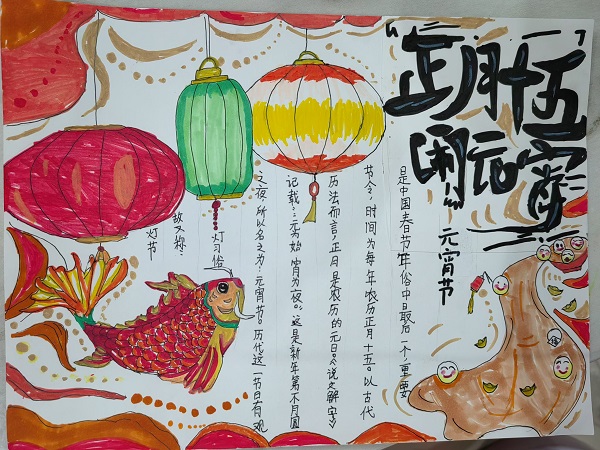 正月十五
闹元宵
——元宵节
是中国春节年俗中最后一个重要
节令,时间为每年农历正月十五。以古代
历法而言,正月是农历的元日。《说文解字》
记载:"元为始,宵为夜。"这是新年第一个月圆
之夜,所以名之为:元宵节。历代这一节日有观
灯习俗
故又称
灯节